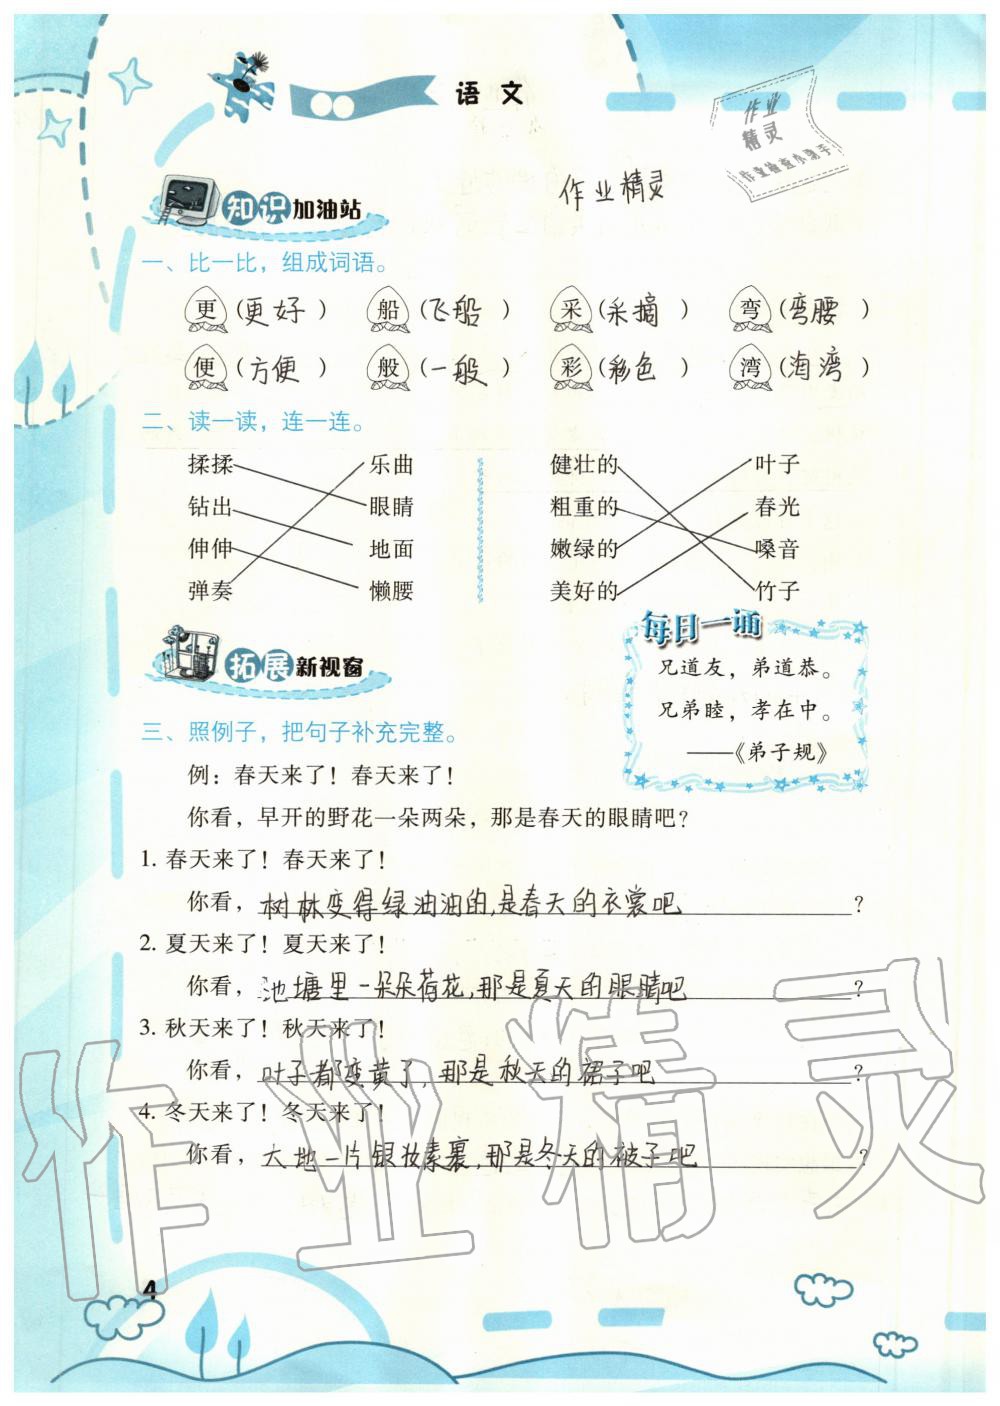 语文
作业
精灵
作业检查小助手
作业精灵
知识加油站
一、比一比，组成词语。
更(更好) 船(飞船) 采(采摘) 弯(弯腰)
便(方便) 般(一般) 彩(彩色) 湾(海湾)
二、读一读，连一连。
揉揉 乐曲 健壮的 叶子
钻出 眼睛 粗重的 春光
伸伸 地面 嫩绿的 嗓音
弹奏 懒腰 美好的 竹子
每日一诵
兄道友，弟道恭。
兄弟睦，孝在中。
——《弟子规》
拓展新视窗
三、照例子，把句子补充完整。
例：春天来了！春天来了！
你看，早开的野花一朵两朵，那是春天的眼睛吧？
1. 春天来了！春天来了！
你看，树林变得绿油油的,是春天的衣裳吧？
2. 夏天来了！夏天来了！
你看，池塘里一朵朵荷花,那是夏天的眼睛吧？
3. 秋天来了！秋天来了！
你看，叶子都变黄了,那是秋天的裙子吧？
4. 冬天来了！冬天来了！
你看，大地一片银妆素裹,那是冬天的被子吧？
作业精灵
4